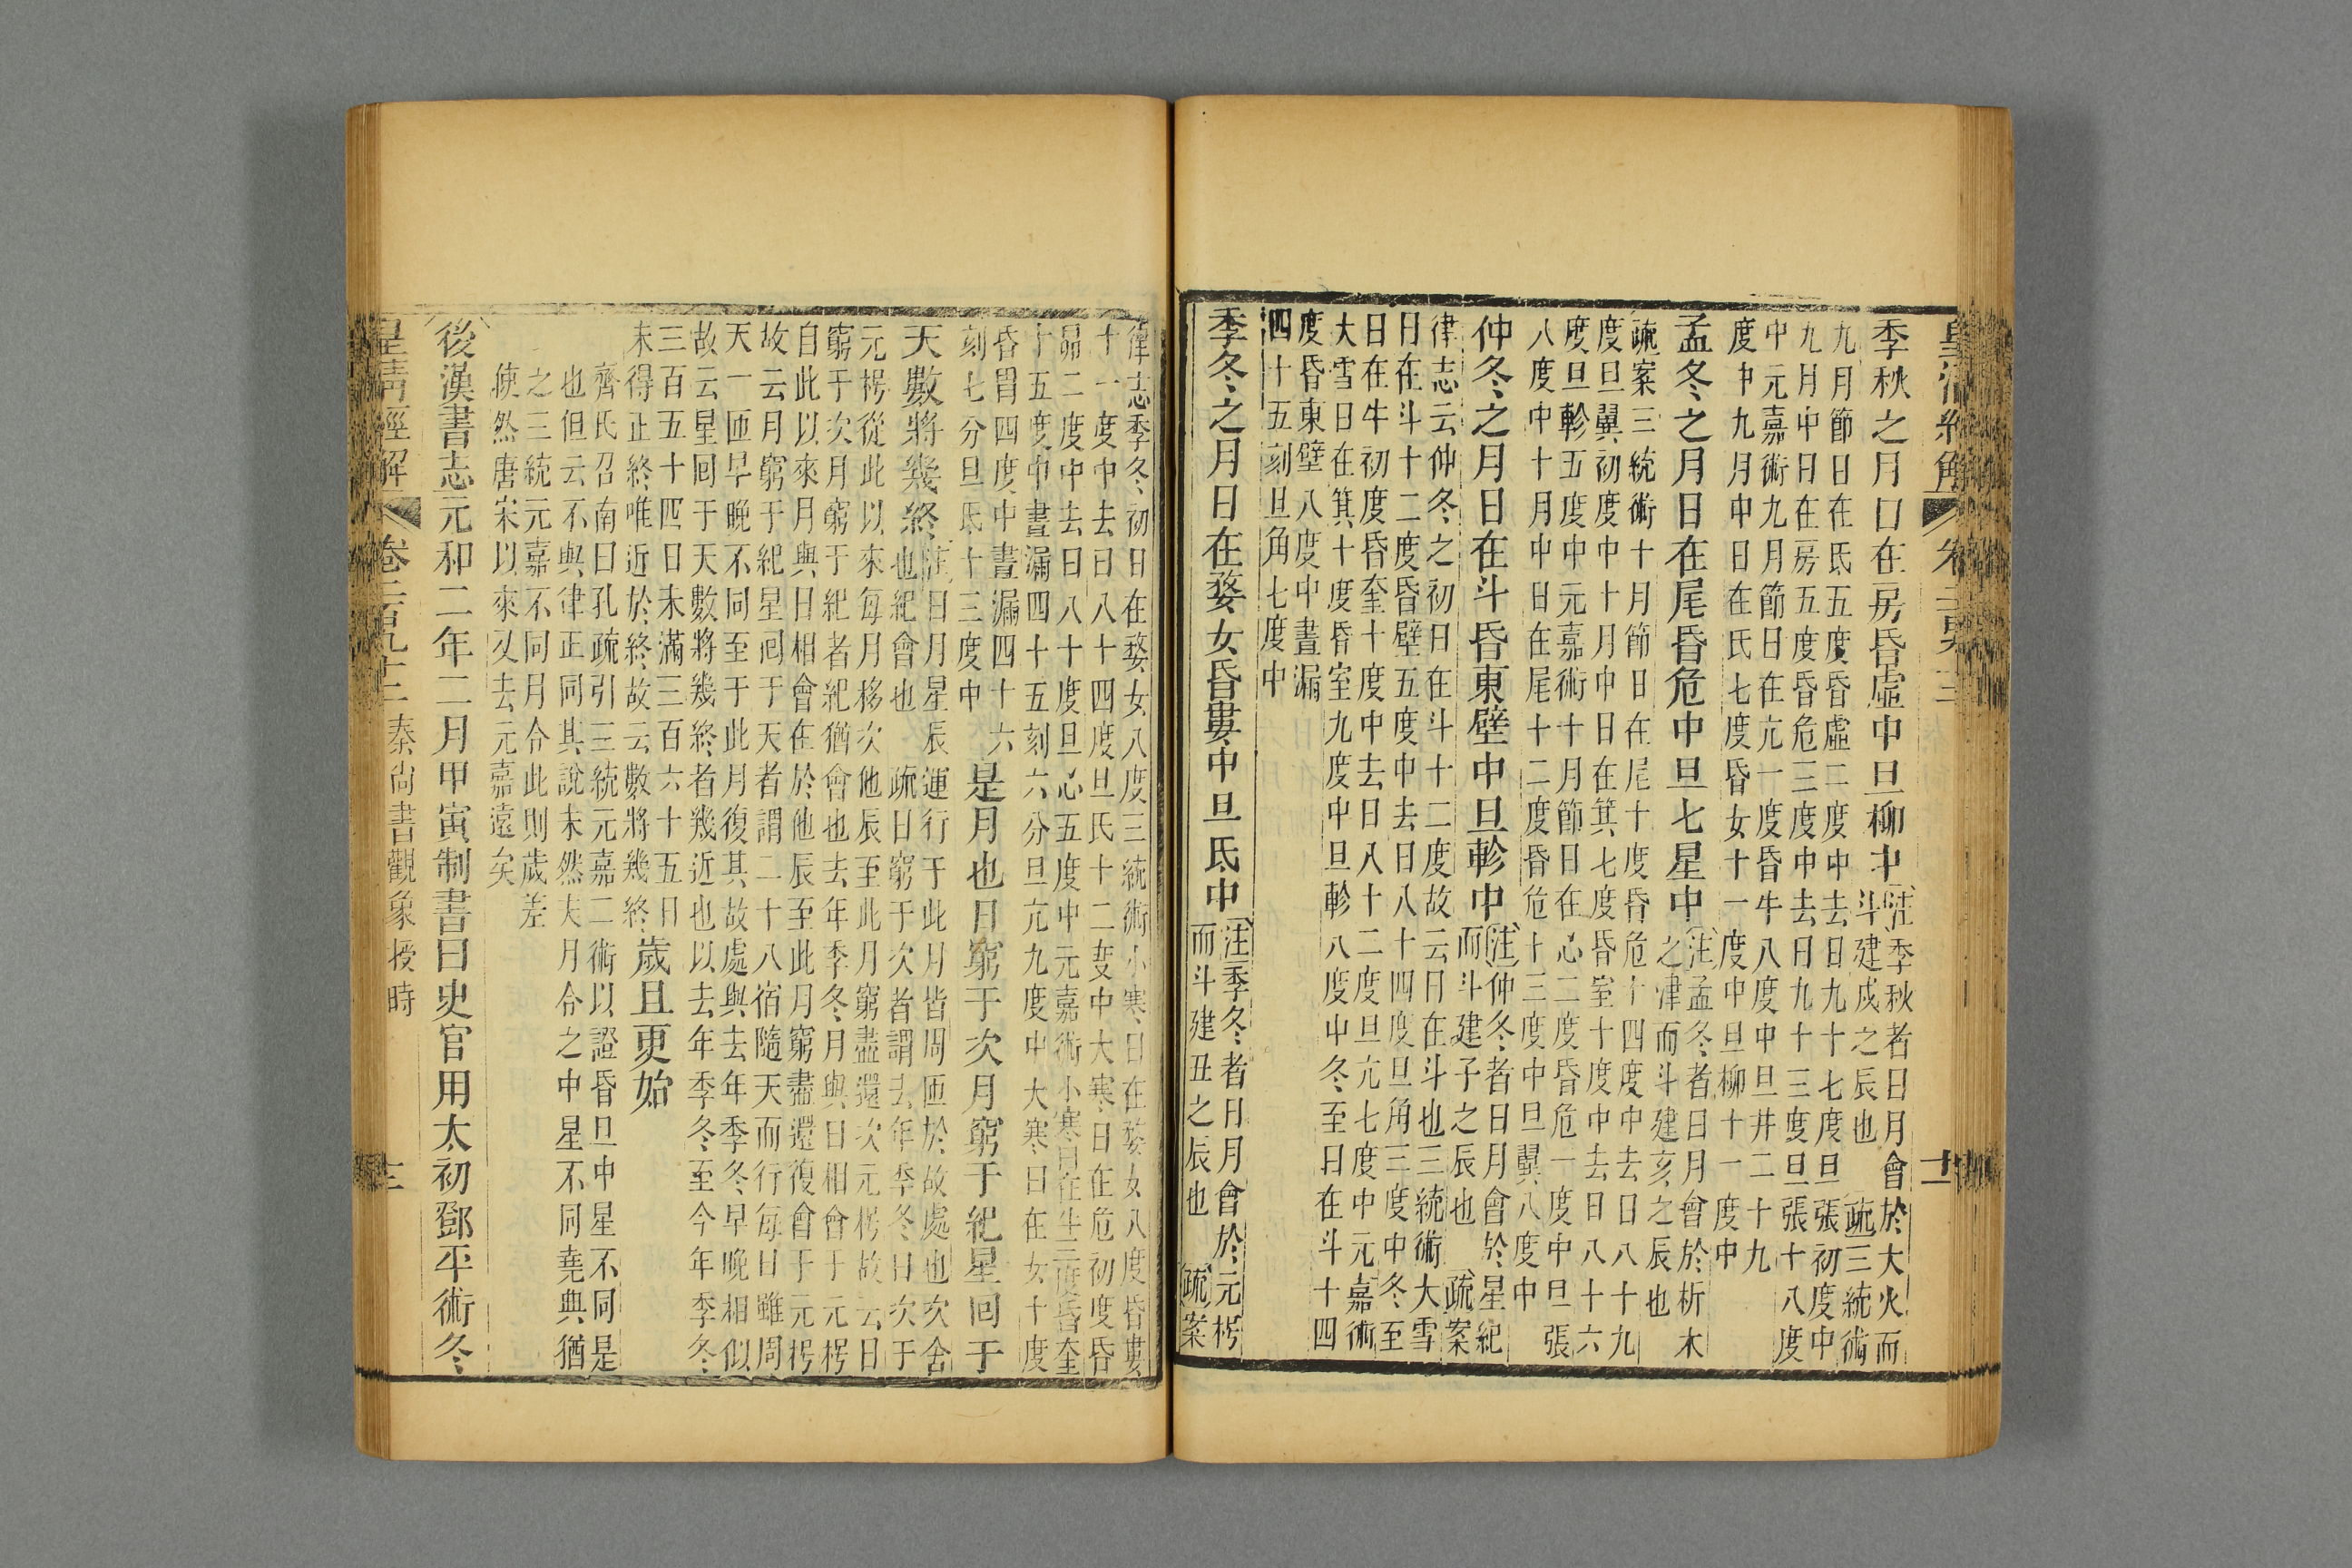 季秋之月日在房昏虛中旦柳中注季秋者日月會於大火而
斗建戌之辰也疏三統術
九月節日在氐五度昏虛二度中去日九十七度旦張初度中
九月中日在房五度昏危三度中去日九十三度旦張十八度
中元嘉術九月節日在亢一度昏牛八度中旦井二十九
度中九月中日在氐七度昏女十一度中旦柳十一度中
孟冬之月日在尾昏危中旦七星中注孟冬者日月會於析木
之津而斗建亥之辰也
疏案三統術十月節日在尾十度昏危十四度中去日八十九
度旦翼初度中十月中日在箕七度昏室十度中去日八十六
度旦軫五度中元嘉術十月節日在心二度昏危一度中旦張
八度中十月中日在尾十二度昏危十三度中旦翼八度中
仲冬之月日在斗昏東壁中旦軫中注仲冬者日月會於星紀
而斗建子之辰也疏案
律志云仲冬之初日在斗十二度故云日在斗也三統術大雪
日在斗十二度昏壁五度中去日八十四度旦角三度中冬至
日在牛初度昏奎十度中去日八十二度旦亢七度中元嘉術
大雪日在箕十度昏室九度中旦軫八度中冬至日在斗十四
度昏東壁八度中晝漏
四十五刻旦角七度中
季冬之月日在婺女昏婁中旦氐中注季冬者日月會於元枵
而斗建丑之辰也疏案
律志季冬初日在婺女八度三統術小寒日在婺女八度昏婁
十一度中去日八十四度旦氐十二度中大寒日在危初度昏
昴二度中去日八十度旦心五度中元嘉術小寒日在牛三度昏奎
十五度中晝漏四十五刻六分旦亢九度中大寒日在女十度
昏胃四度中晝漏四十六
刻七分旦氐十三度中
是月也日窮于次月窮于紀星回于
天數將幾終注日月星辰運行于此月皆周匝於故處也次舍
也紀會也疏日窮于次者謂去年季冬日次于
元枵從此以來每月移次他辰至此月窮盡還次元枵故云日
窮于次月窮于紀者紀猶會也去年季冬月與日相會于元枵
自此以來月與日相會在於他辰至此月窮盡還復會于元枵
故云月窮于紀星回于天者謂二十八宿隨天而行每日雖周
天一匝早晚不同至于此月復其故處與去年季冬早晚相似
故云星回于天數將幾終者幾近也以去年季冬至今年季冬
三百五十四日未滿三百六十五日
未得正終唯近於終故云數將幾終
歲且更始
齊氏召南曰孔疏引三統元嘉二術以證昏旦中星不同是
也但云不與律正同其說未然夫月令之中星不同堯典猶
之三統元嘉不同月令此則歲差
使然唐宋以來又去元嘉遠矣
後漢書志元和二年二月甲寅制書曰史官用太初鄧平術冬
皇清經解
秦尚書觀象授時